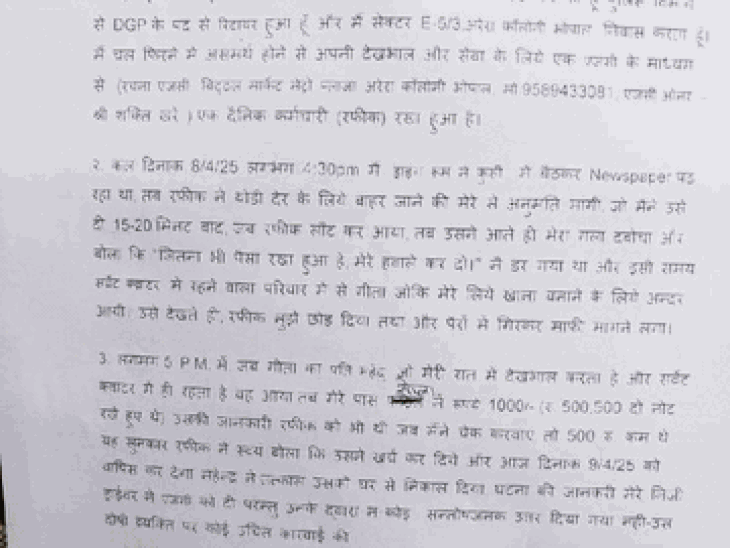 से DGP के पद से रिटायर हुआ हूँ और मैं सेक्टर E-5/3 अरेरा कॉलोनी भोपाल निवास करता हूँ।
मैं चल फिरने में असमर्थ होने से अपनी देखभाल और सेवा के लिये एक एजेंसी के माध्यम
से (रचना एजेंसी बिट्टल मार्केट मेट्रो प्लाजा अरेरा कॉलोनी भोपाल, मो 9589433081, एजेंसी ओनर -
श्री शक्ति खरे ) एक दैनिक कर्मचारी (रफीक) रखा हुआ है।
2. कल दिनांक 8/4/25 लगभग 4:30pm मैं ड्राइंग रूम में कुर्सी में बैठकर Newspaper पढ़
रहा था, तब रफीक ने थोडी देर के लिये बाहर जाने की मेरे से अनुमति मांगी, जो मैंने उसे
दी 15-20 मिनट बाद, जब रफीक लौट कर आया, तब उसने आते ही मेरा गला दबोचा और
बोला कि "जितना भी पैसा रखा हुआ है, मेरे हवाले कर दो।" मैं डर गया था और इसी समय
सर्वेंट क्वाटर में रहने वाला परिवार में से गीता जोकि मेरे लिये खाना बनाने के लिये अन्दर
आयी। उसे देखते ही, रफीक मुझे छोड़ दिया तथा और पैरों में गिरकर माफी मांगने लगा।
3. लगभग 5 P.M. में, जब गीता का पति महेंद्र जो मेरी रात में देखभाल करता है और सर्वेंट
क्वाटर में ही रहता है वह आया तब मेरे पास ने रूपये 1000/- (रु 500,500 दो नोट
रखे हुए थे) उसकी जानकारी रफीक को भी थी जब मैंने चेक करवाए तो 500 रु कम थे
यह सुनकर रफीक ने स्वयं बोला कि उसने खर्च कर दिये और आज दिनांक 9/4/25 को
वापिस कर देगा महेन्द्र ने तत्काल उसको घर से निकाल दिया घटना की जानकारी मेरे निजी
ड्राईवर ने एजेंसी को दी परन्तु उनके द्वारा कोई सन्तोषजनक उत्तर दिया गया नहीं-उस
दोषी व्यक्ति पर कोई उचित कारवाई की